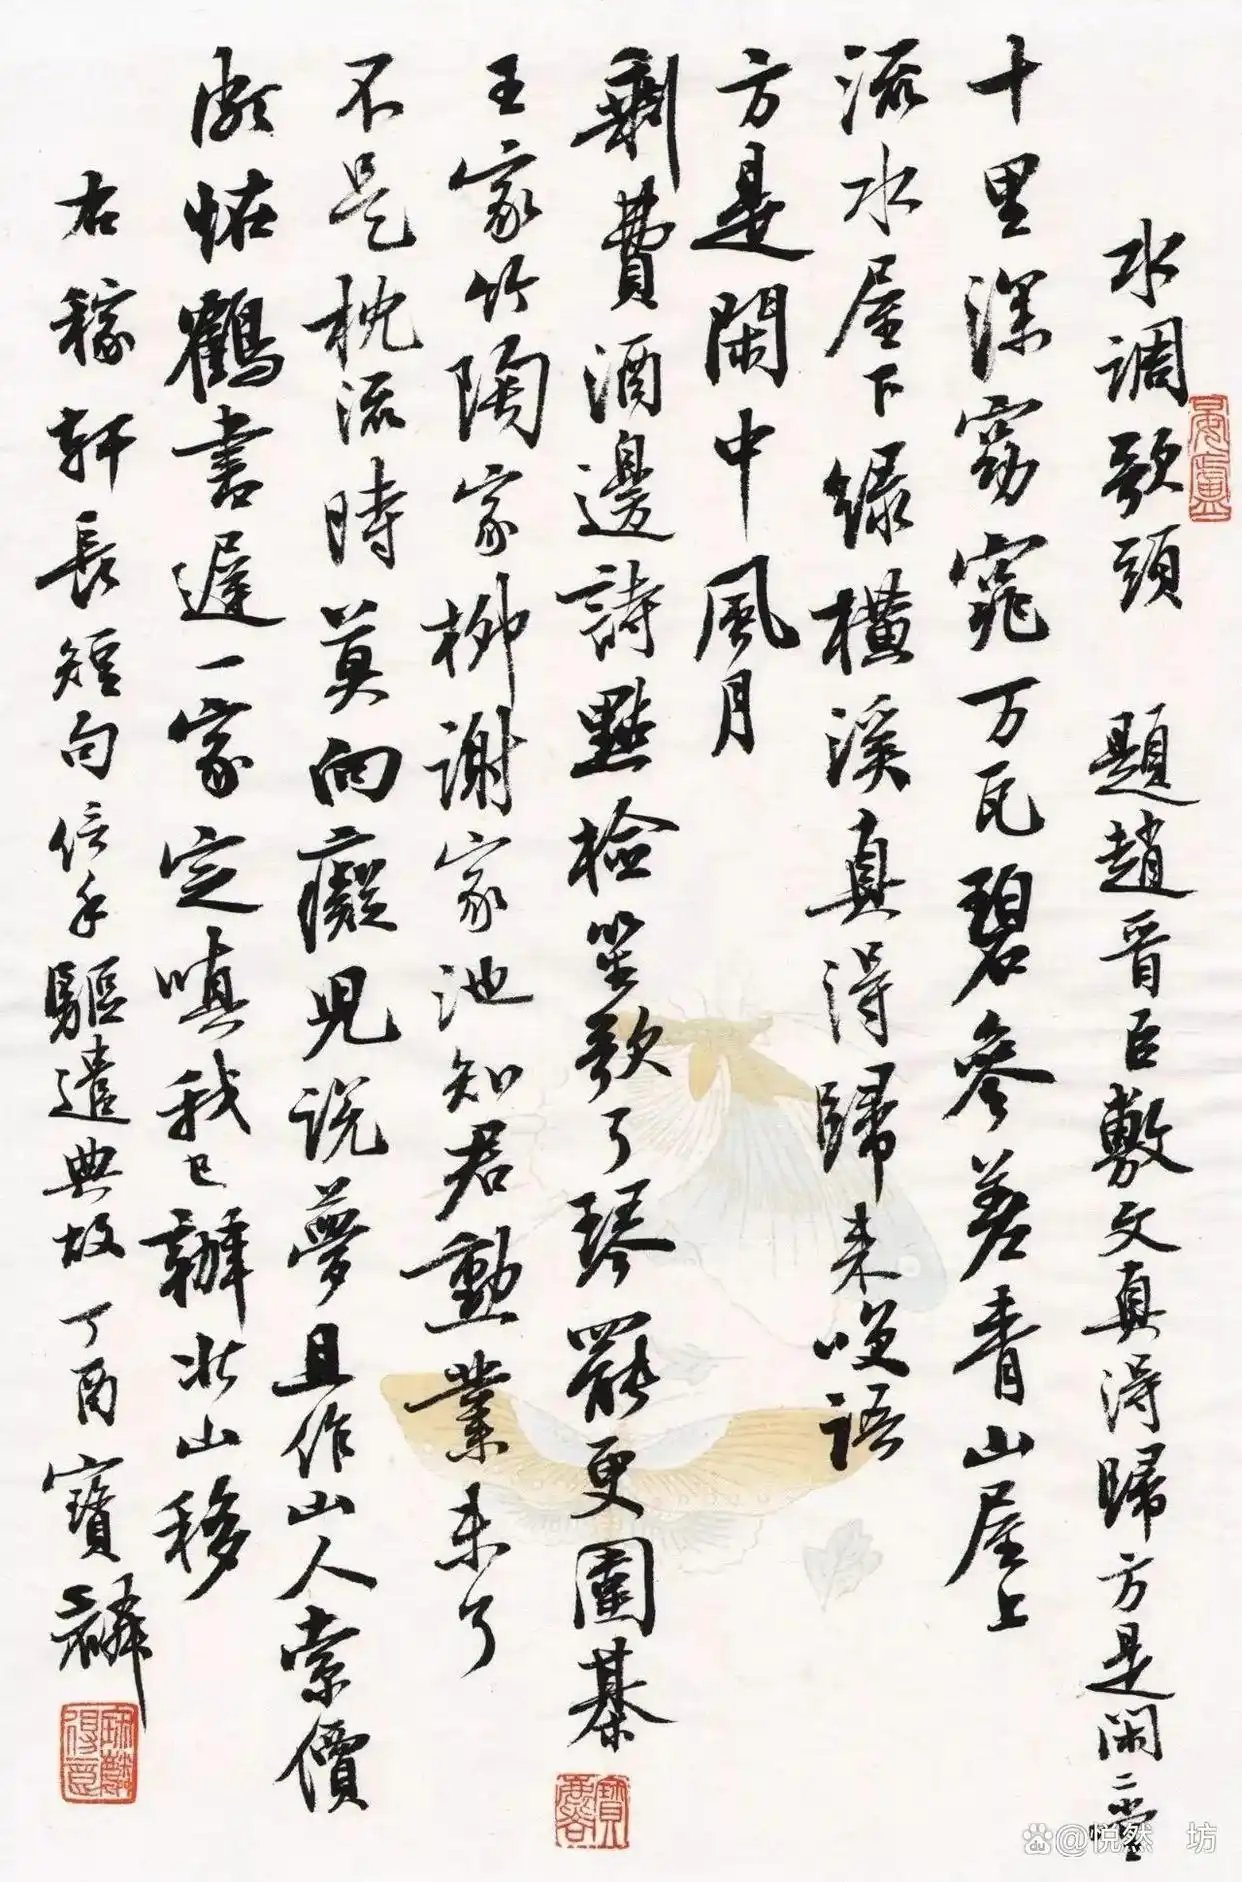 水調歌頭 題趙晉臣敷文真得歸方是閑二堂
十里深窈窕万瓦碧參差青山屋上
流水屋下綠橫溪真得歸来笑語
方是閑中風月
剩費酒邊詩點檢笙歌了琴罷更圍棊
王家竹陶家柳謝家池知君勳業未了
不是枕流時莫向癡兒說夢且作山人索價
頗怪鶴書遲一事定嗔我已辦北山移
右稼軒長短句信手驅遣典故丁酉寶麟
@悦然 坊